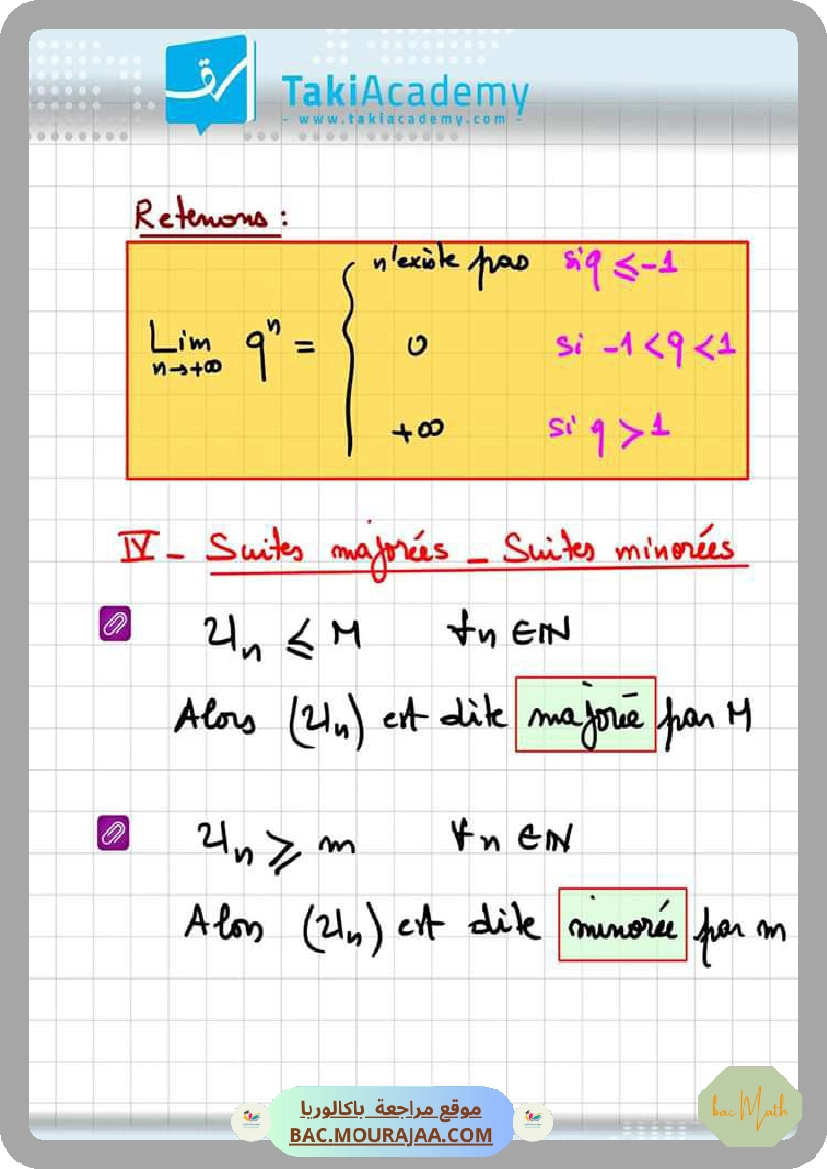 TakiAcademy
- www.takiacademy.com -
Retenons :
n'existe pas si q ⩽ -1
Lim q^n = 0 si -1 < q < 1
n→+∞
+∞ si q > 1
IV - Suites majorées - Suites minorées
U_n ⩽ M ∀n ∈ ℕ
Alors (U_n) est dite majorée par M
U_n ⩾ m ∀n ∈ ℕ
Alors (U_n) est dite minorée par m
موقع مراجعة باكالوريا
BAC.MOURAJAA.COM
bac Math